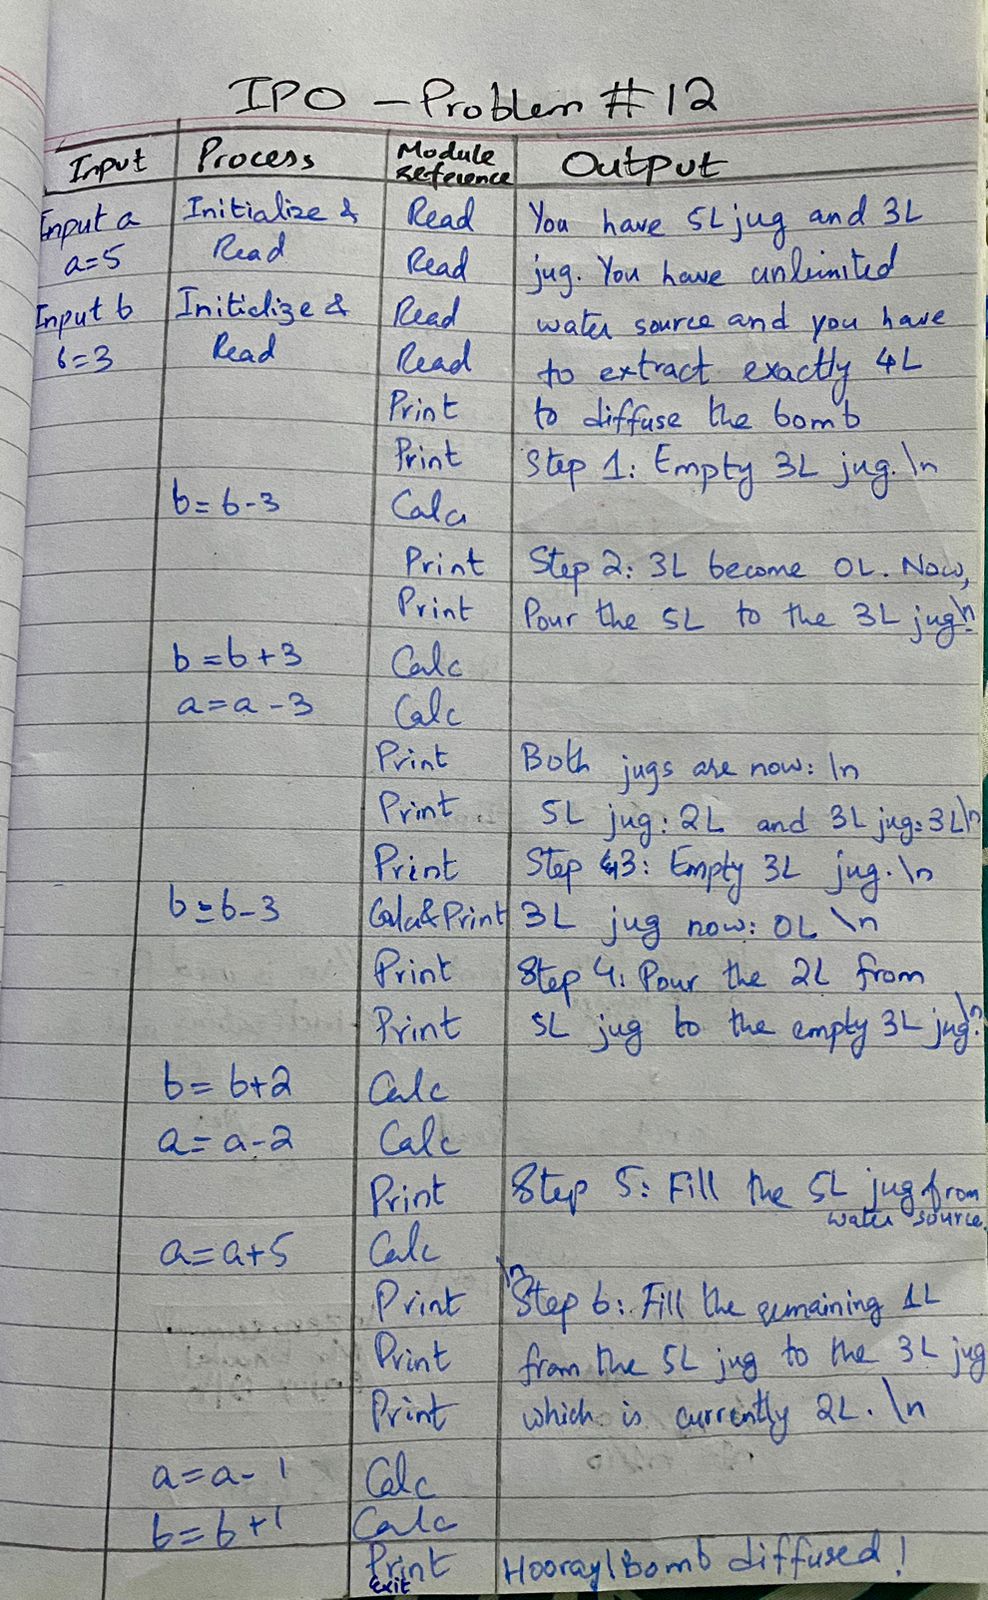 IPO - Problem # 12
Input Process Module Reference Output
Input a Initialize & Read You have 5L jug and 3L
a=5 Read Read jug. You have unlimited
Input b Initialize & Read water source and you have
b=3 Read Read to extract exactly 4L
Print to diffuse the bomb
Print Step 1: Empty 3L jug. \n
b=b-3 Calc
Print Step 2: 3L become 0L. Now,
Print Pour the 5L to the 3L jug \n
b=b+3 Calc
a=a-3 Calc
Print Both jugs are now: \n
Print 5L jug: 2L and 3L jug: 3L \n
Print Step 3: Empty 3L jug. \n
b=b-3 Calc&Print 3L jug now: 0L \n
Print Step 4: Pour the 2L from
Print 5L jug to the empty 3L jug. \n
b=b+2 Calc
a=a-2 Calc
Print Step 5: Fill the 5L jug from
water source.
a=a+5 Calc \n
Print Step 6: Fill the remaining 1L
Print from the 5L jug to the 3L jug
Print which is currently 2L. \n
a=a-1 Calc
b=b+1 Calc
Print Hooray! Bomb diffused!
Exit